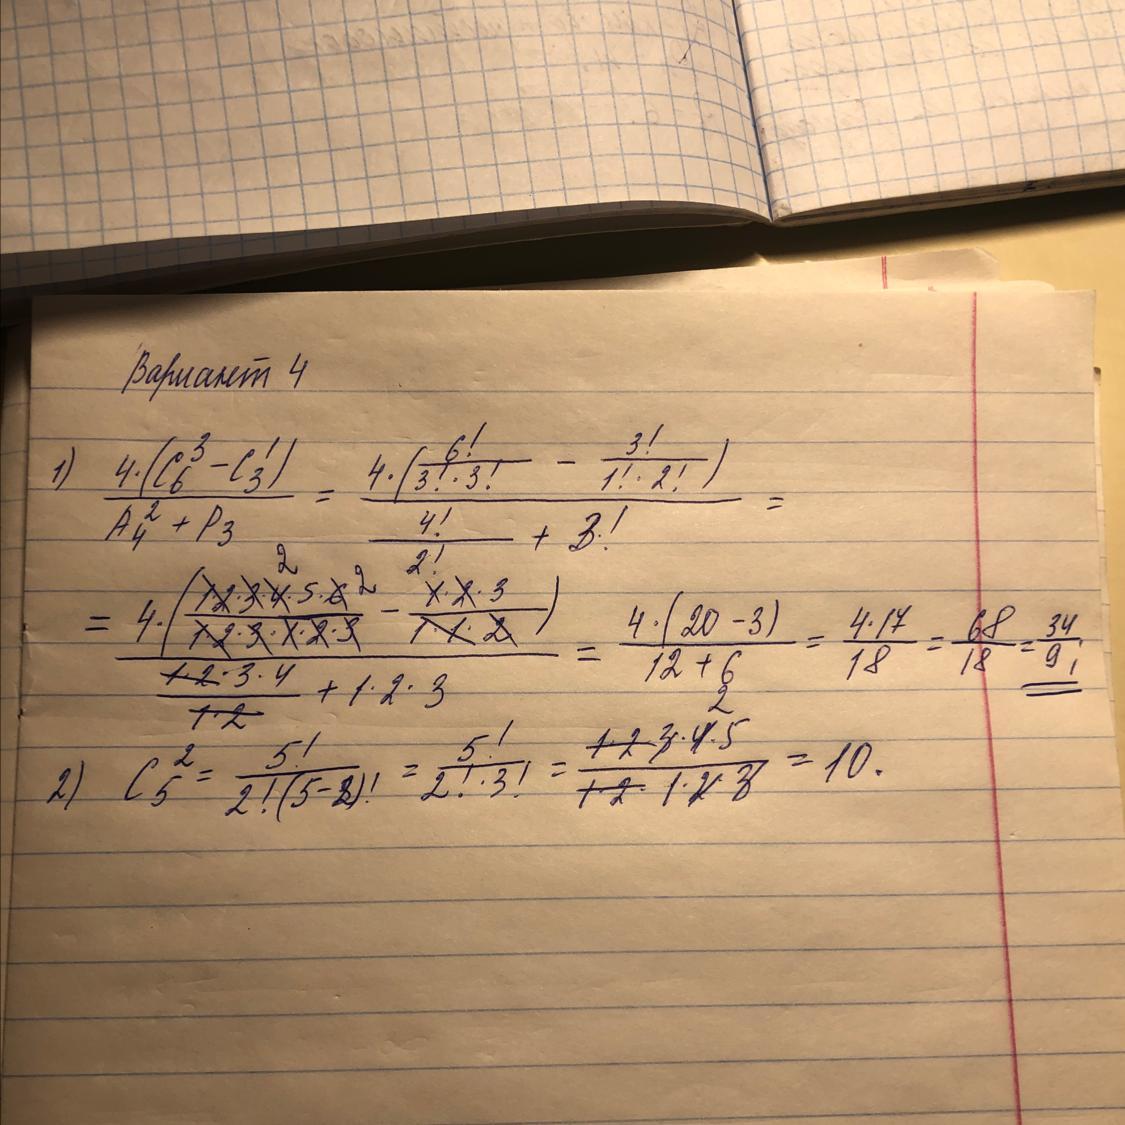 Вариант 4
1) (4·(C₆³ − C₃¹))/(A₄² + P₃) = (4·(6!/(3!·3!) − 3!/(1!·2!)))/(4!/2! + 3!) =
= (4·((1·2·3·4·5·6)/(1·2·3·1·2·3) − (1·2·3)/(1·1·2)))/((1·2·3·4)/(1·2) + 1·2·3) = (4·(20 − 3))/(12 + 6) = (4·17)/18 = 68/18 = 34/9;
2) C₅² = 5!/(2!(5−2)!) = 5!/(2!·3!) = (1·2·3·4·5)/(1·2·1·2·3) = 10.